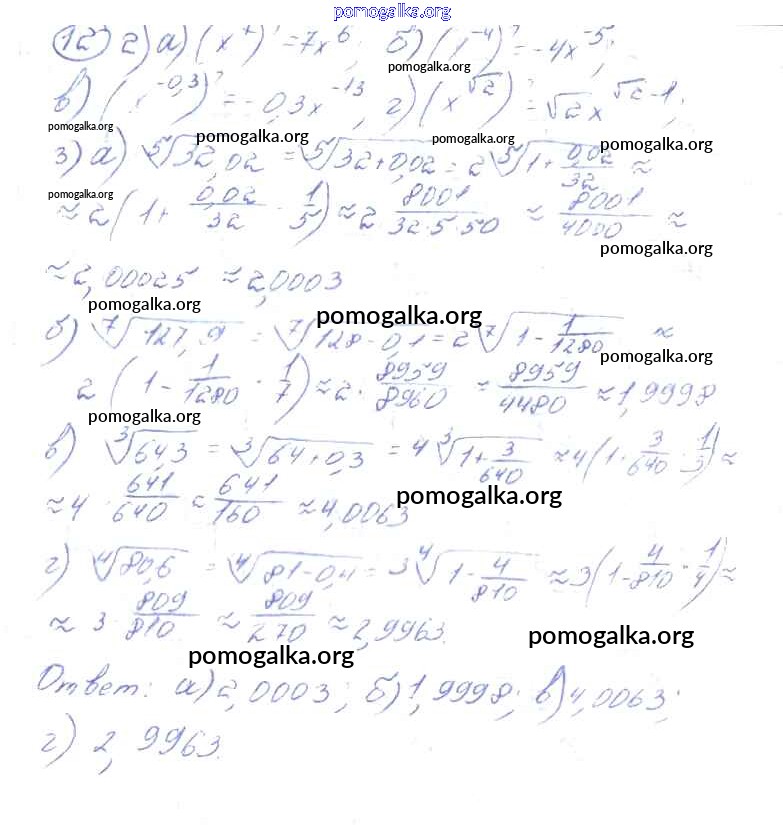 pomogalka.org
12) 2) а) (x⁷)' = 7x⁶; б) (x⁻⁴)' = -4x⁻⁵;
pomogalka.org
в) (x^-0,3)' = -0,3x^-1,3; г) (x^√2)' = √2 x^√2-1;
pomogalka.org pomogalka.org pomogalka.org pomogalka.org
3) а) ⁵√32,02 = ⁵√32+0,02 = 2 ⁵√1+0,02/32 ≈
pomogalka.org pomogalka.org
≈ 2 (1+ 0,02/32 · 1/5) ≈ 2 · 8001/32·5·50 ≈ 8001/4000 ≈
pomogalka.org
≈ 2,00025 ≈ 2,0003
pomogalka.org pomogalka.org
б) ⁷√127,9 = ⁷√128-0,1 = 2 ⁷√1 - 1/1280 ≈
pomogalka.org
2 (1 - 1/1280 · 1/7) ≈ 2 · 8959/8960 = 8959/4480 ≈ 1,9998
pomogalka.org
в) ³√64,3 = ³√64+0,3 = 4 ³√1+3/640 ≈ 4(1· 3/640 · 1/3) ≈
≈ 4 · 641/640 ≈ 641/160 ≈ 4,0063
pomogalka.org
г) ⁴√80,6 = ⁴√81-0,4 = 3 ⁴√1 - 4/810 ≈ 3(1- 4/810 · 1/4) ≈
≈ 3 · 809/810 ≈ 809/270 ≈ 2,9963.
pomogalka.org pomogalka.org
Ответ: а) 2,0003; б) 1,9998; в) 4,0063;
г) 2,9963.